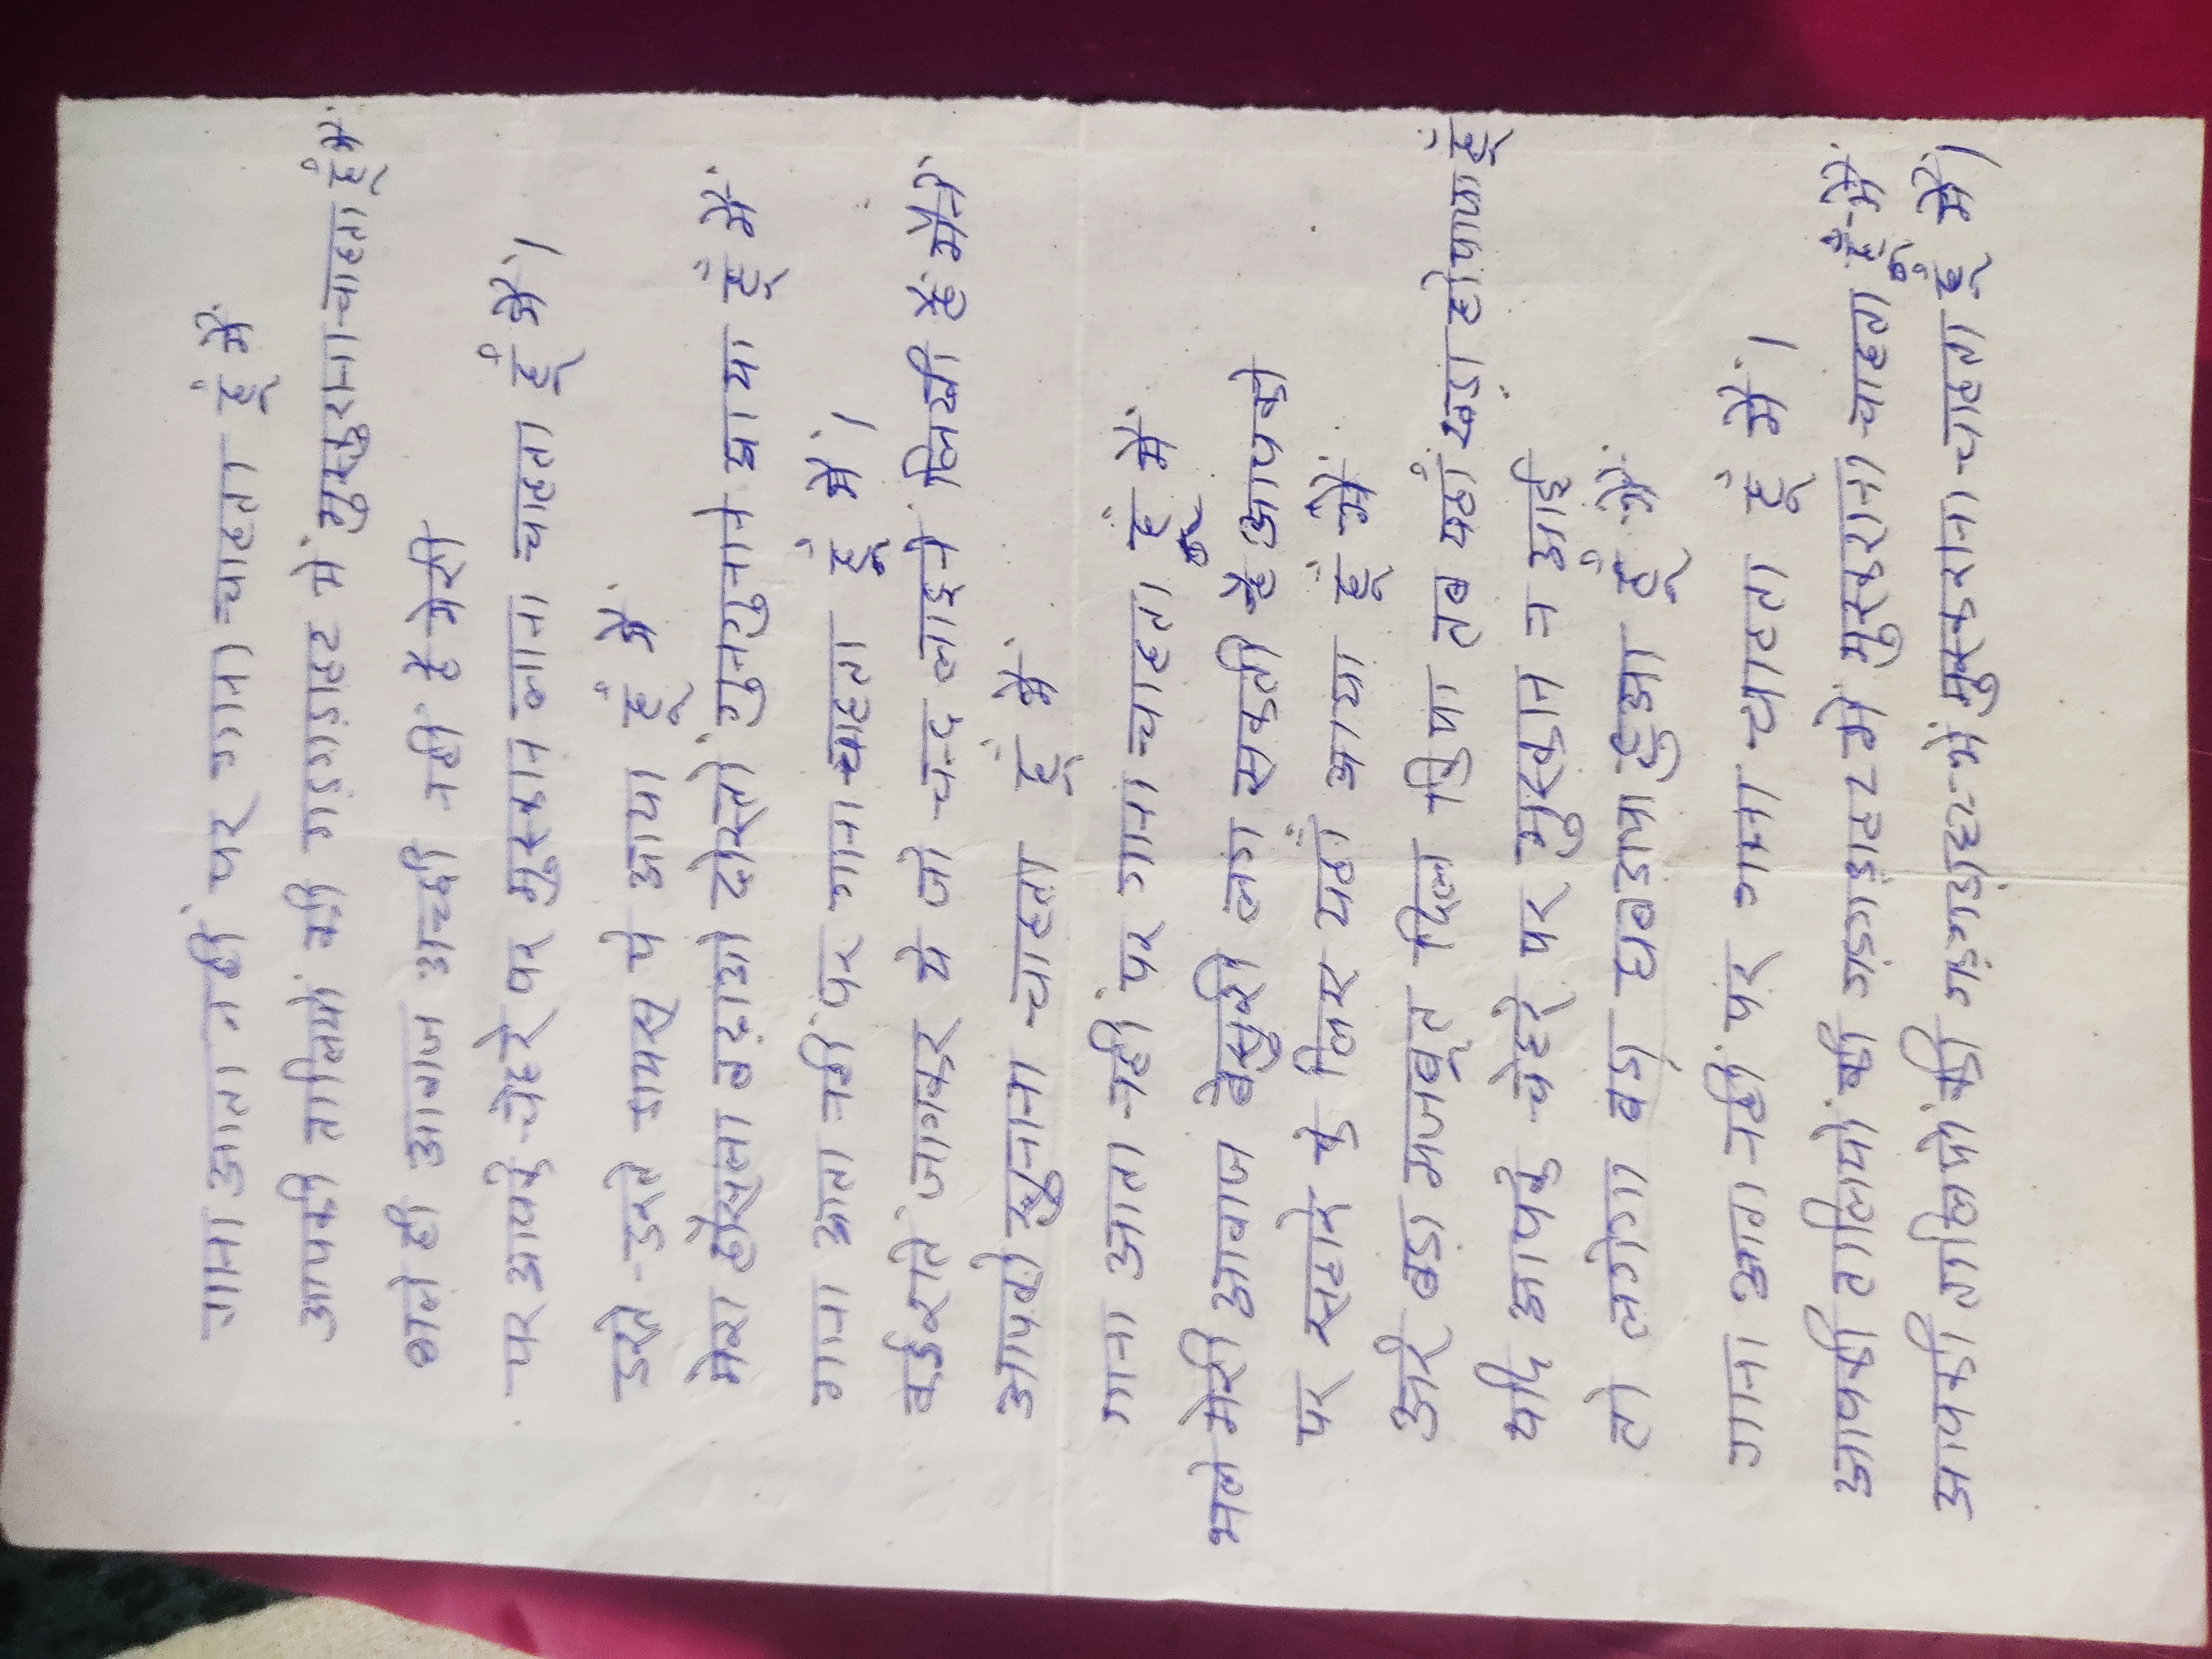 गाना आता नहीं पर गाना चाहता हूं मैं
आपकी तालियों की गड़गड़ाहट में मुस्कुराना चाहता हूं मैं
भले ही आवाज अच्छी नही है मेरी
पर आपके चेहरे पर मुस्कान लाना चाहता हूं मैं।
डरते-डरते मायस पे आया हूं मैं
मेरा हौसला बढ़ाओ दोस्तों गुनगुनाने आया हूं मैं
गाना आता नहीं पर गाना चाहता हूं मैं।
कई रातें जागकर ये जो चन्द लाइने लिखी हैं मैंने
आपको सुनाना चाहता हूं मैं
गाना आता नहीं पर गाना चाहता हूं मैं
भले मेरी आवाज बेसुरी लग सकती है आपको
पर स्टारे के लिए यहाँ आया हूं मैं
अरे बड़ा मजबूत दिल किया तब यहाँ खड़ा हो पाया हूं
यदि आपके चेहरे पर मुस्कान न आई
तो लगेगा बड़ा घबड़ाया हुआ हूं मैं
गाना आता नहीं पर गाना चाहता हूं मैं।
आपकी तालियों की गड़गड़ाहट में मुस्कुराना चाहता हूं मैं
आपकी तालियों की गड़गड़ाहट में मुस्कुराना चाहता हूं मैं।